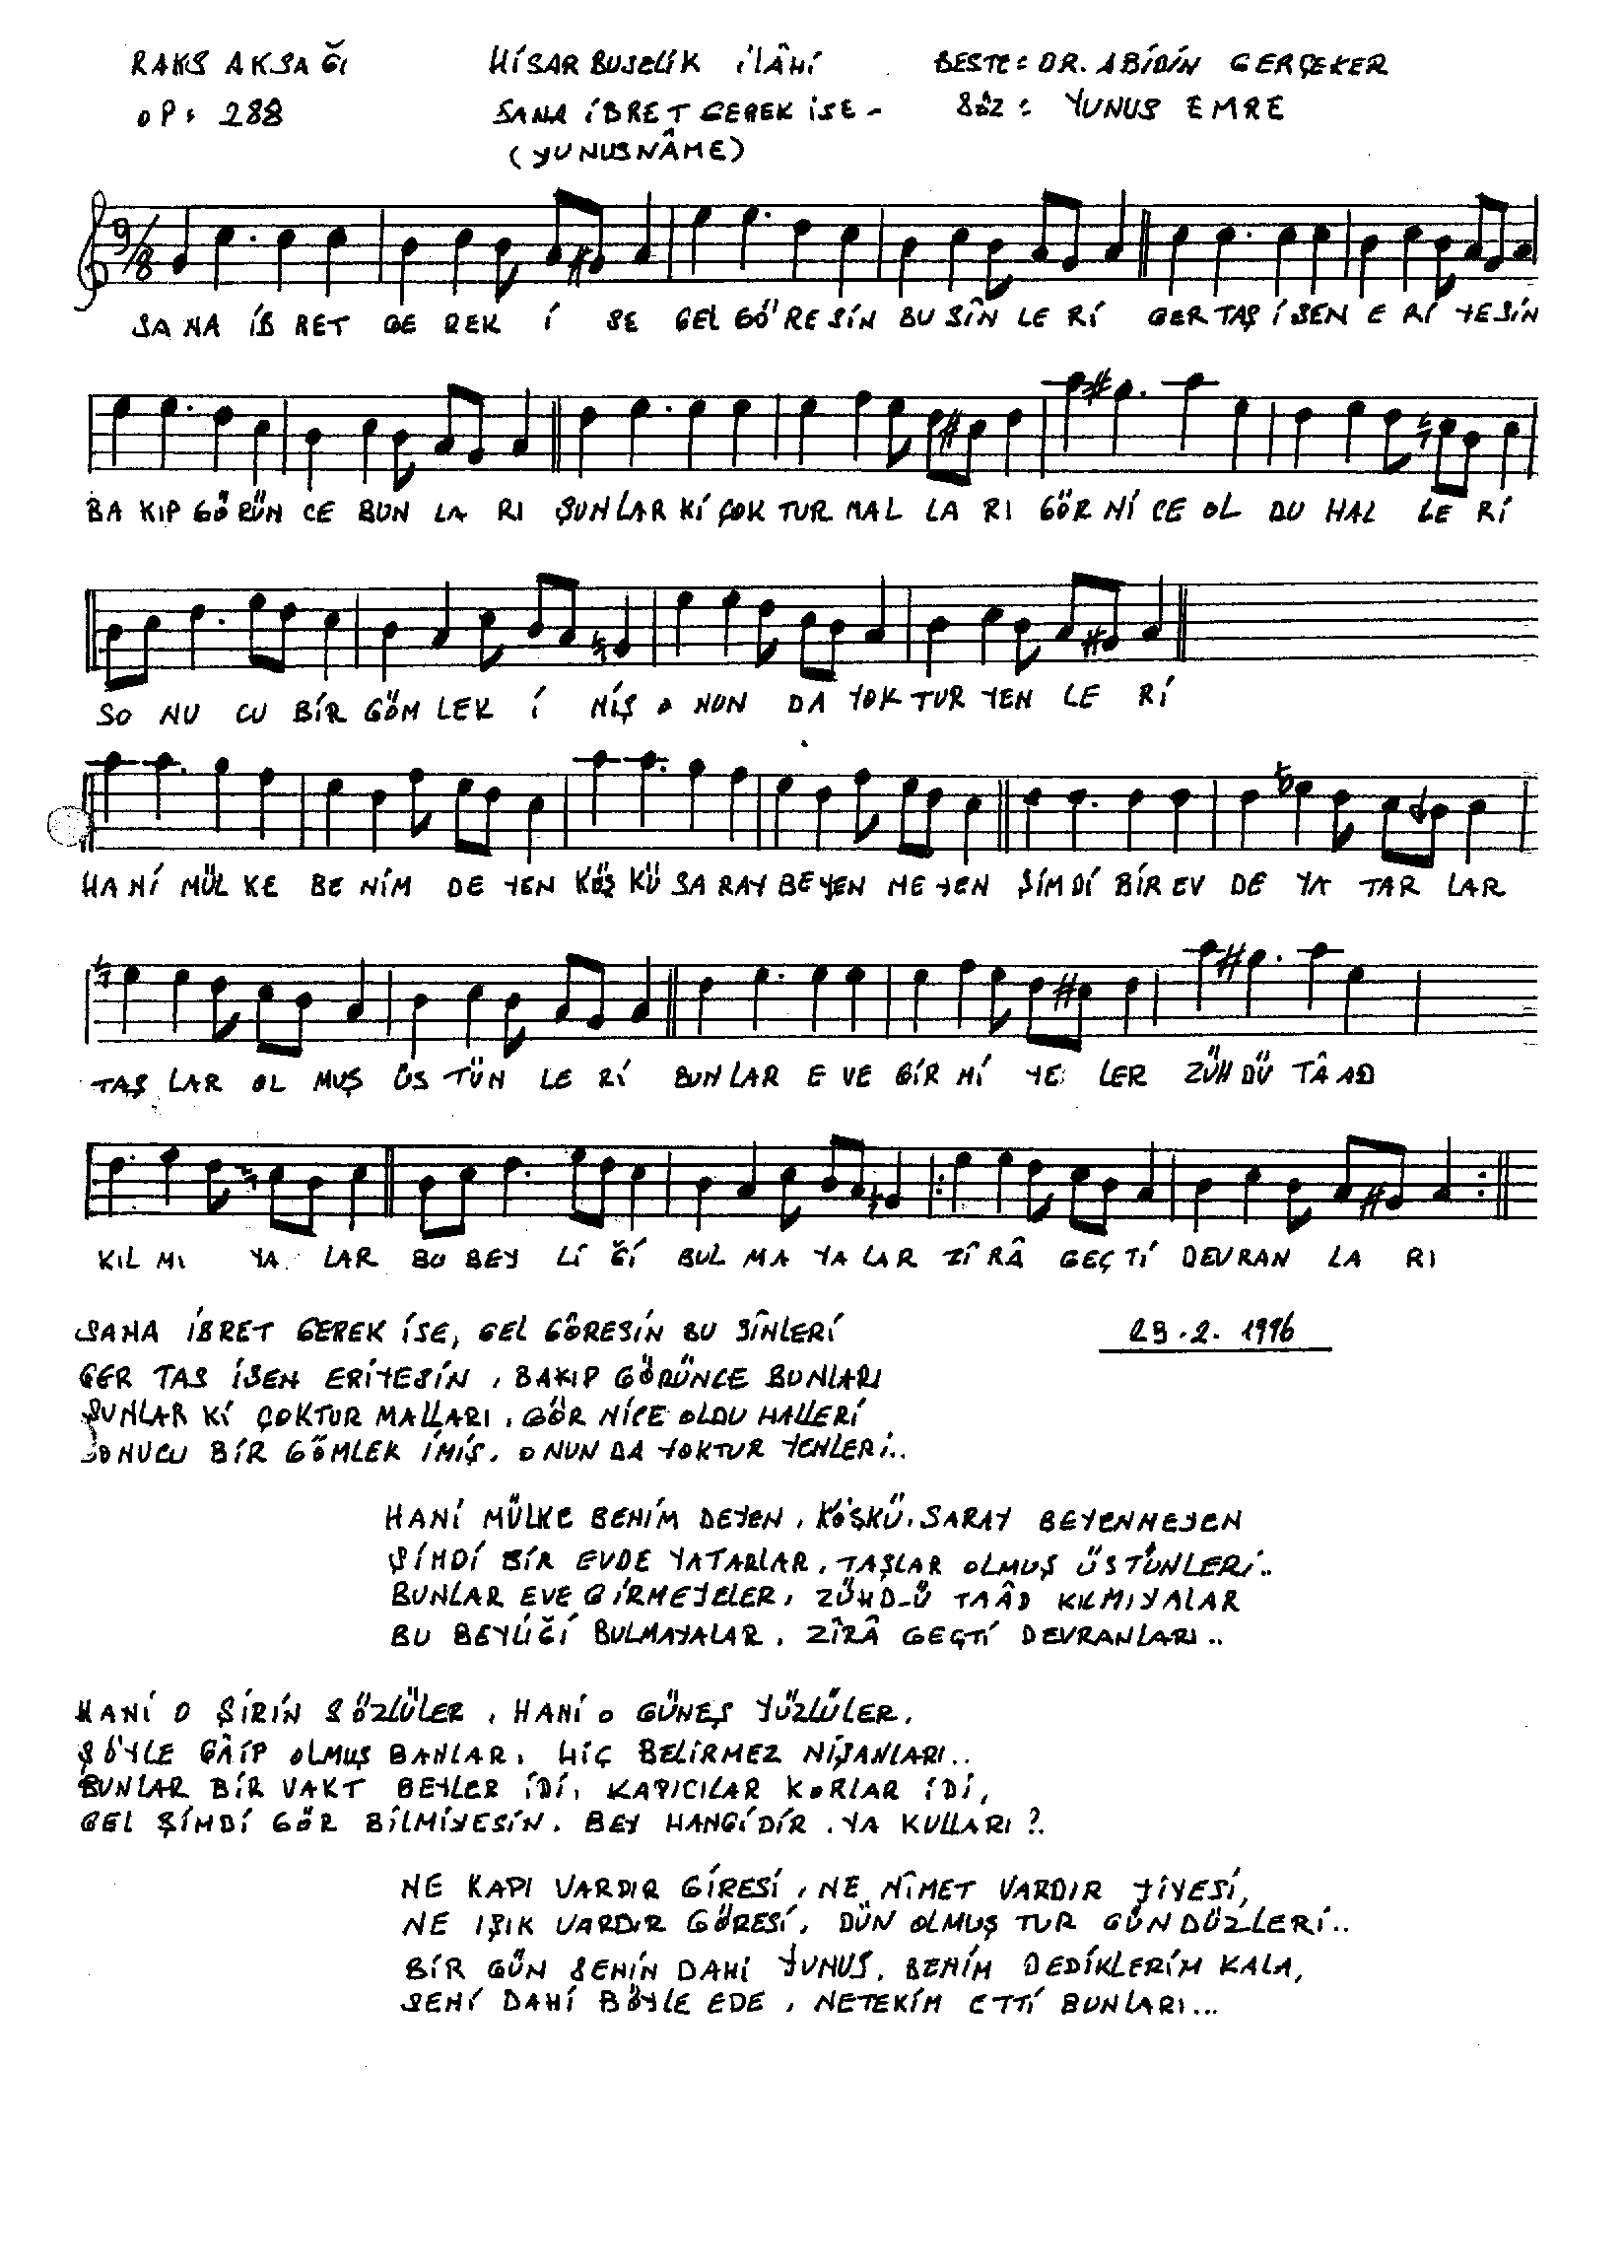 RAKS AKSAĞI HİSAR BUSELİK İLÂHİ BESTE: DR. ABİDİN GERÇEKER
OP: 288 SANA İBRET GEREK İSE - SÖZ: YUNUS EMRE
(YUNUSNÂME)
9/8
SA NA İB RET GE REK İ SE GEL GÖ RE SİN BU SÎN LE Rİ GER TAŞ İ SEN E Rİ YE SİN
BA KIP GÖ RÜN CE BUN LA RI ŞUN LAR Kİ ÇOK TUR MAL LA RI GÖR Nİ CE OL DU HAL LE Rİ
SO NU CU BİR GÖM LEK İ MİŞ O NUN DA YOK TUR YEN LE Rİ
HA Nİ MÜL KE BE NİM DE YEN KÖŞ KÜ SA RAY BE YEN ME YEN ŞİM Dİ BİR EV DE YA TAR LAR
TAŞ LAR OL MUŞ ÜS TÜN LE Rİ BUN LAR E VE GİR Mİ YE LER ZÜH DÜ TÂ AD
KIL MI YA LAR BU BEY Lİ Ğİ BUL MA YA LAR ZÎ RÂ GEÇ Tİ DEVRAN LA RI
SANA İBRET GEREK İSE, GEL GÖRESİN BU SÎNLERİ 29.2.1996
GER TAS İSEN ERİYESİN, BAKIP GÖRÜNCE BUNLARI
ŞUNLAR Kİ ÇOKTUR MALLARI, GÖR NİCE OLDU HALLERİ
SONUCU BİR GÖMLEK İMİŞ. ONUN DA YOKTUR YENLERİ..
HANİ MÜLKE BENİM DEYEN, KÖŞKÜ, SARAY BEYENMEYEN
ŞİMDİ BİR EVDE YATARLAR, TAŞLAR OLMUŞ ÜSTÜNLERİ..
BUNLAR EVE GİRMEYELER, ZÜHD-Ü TAÂD KILMIYALAR
BU BEYLİĞİ BULMAYALAR, ZÎRÂ GEÇTİ DEVRANLARI..
HANİ O ŞİRİN SÖZLÜLER, HANİ O GÜNEŞ YÜZLÜLER,
ŞÖYLE GÂİP OLMUŞ BANLAR, HİÇ BELİRMEZ NİŞANLARI..
BUNLAR BİR VAKT BEYLER İDİ, KAPICILAR KORLAR İDİ,
GEL ŞİMDİ GÖR BİLMİYESİN. BEY HANGİDİR, YA KULLARI?.
NE KAPI VARDIR GİRESİ, NE NÎMET VARDIR YİYESİ,
NE IŞIK VARDIR GÖRESİ, DÜN OLMUŞ TUR GÜNDÜZLERİ..
BİR GÜN SENİN DAHİ YUNUS, BENİM DEDİKLERİM KALA,
SENİ DAHİ BÖYLE EDE, NETEKİM ETTİ BUNLARI...